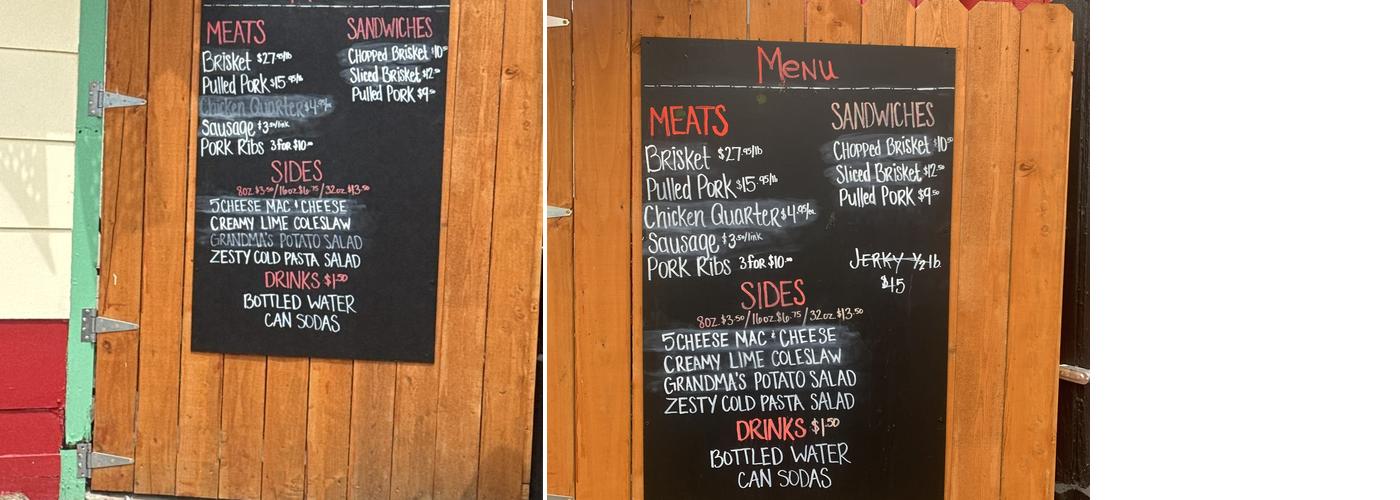 MEATS
Brisket $27.95/lb
Pulled Pork $15.95/lb
Chicken Quarter $4.95/ea.
Sausage $3.50/link
Pork Ribs 3 for $10.00
SANDWICHES
Chopped Brisket $10.50
Sliced Brisket $12.50
Pulled Pork $9.50
SIDES
8oz. $3.50/16oz. $6.75/32oz. $13.50
5 CHEESE MAC & CHEESE
CREAMY LIME COLESLAW
GRANDMA'S POTATO SALAD
ZESTY COLD PASTA SALAD
DRINKS $1.50
BOTTLED WATER
CAN SODAS
Menu
MEATS
Brisket $27.95/lb
Pulled Pork $15.95/lb
Chicken Quarter $4.95/ea.
Sausage $3.50/link
Pork Ribs 3 for $10.00
SANDWICHES
Chopped Brisket $10.50
Sliced Brisket $12.50
Pulled Pork $9.50
JERKY 1/2 lb.
$45
SIDES
8oz. $3.50/16oz. $6.75/32oz. $13.50
5 CHEESE MAC & CHEESE
CREAMY LIME COLESLAW
GRANDMA'S POTATO SALAD
ZESTY COLD PASTA SALAD
DRINKS $1.50
BOTTLED WATER
CAN SODAS